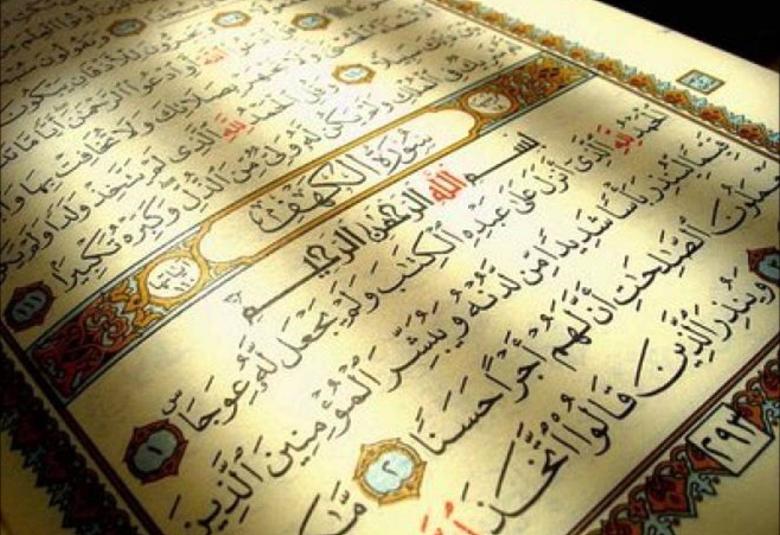 ويقولون
ويخرون للأذقان يبكون
الله أو ادعوا الرحمن أيا ما
ولا تجهر بصلاتك ولا تخافت بها
سبيلا وقل الحمد لله الذي لم يتخذ ولدا ولم
شريك في الملك ولم يكن له ولي من الذل وكبره تكبيرا ١١١
سورة الكهف
بسم الله الرحمن الرحيم
الحمد لله الذي أنزل على عبده الكتٰب ولم يجعل له عوجا ۜ ١
قيما لينذر بأسا شديدا من لدنه ويبشر المؤمنين الذين
يعملون الصٰلحٰت أن لهم أجرا حسنا ٢
وينذر الذين قالوا اتخذ
٢٩٣